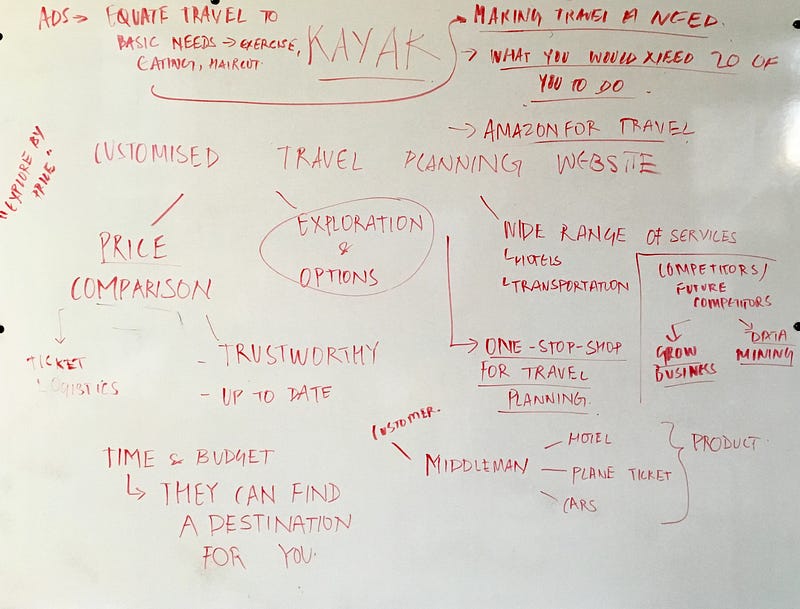 ADS → EQUATE TRAVEL TO
BASIC NEEDS → EXERCISE,
EATING, HAIRCUT.
KAYAK
→ MAKING TRAVEL A NEED.
→ WHAT YOU WOULD NEED 20 OF
YOU TO DO.
→ AMAZON FOR TRAVEL
"EXPLORE BY
PRICE"
CUSTOMISED TRAVEL PLANNING WEBSITE
PRICE
COMPARISON
TICKET
LOGISTICS
- TRUSTWORTHY
- UP TO DATE
EXPLORATION
&
OPTIONS
WIDE RANGE OF SERVICES
HOTELS
TRANSPORTATION
COMPETITORS/
FUTURE
COMPETITORS
GROW
BUSINESS
DATA
MINING
→ ONE-STOP-SHOP
FOR TRAVEL
PLANNING.
TIME & BUDGET
↳ THEY CAN FIND
A DESTINATION
FOR YOU.
CUSTOMER.
MIDDLEMAN
HOTEL
PLANE TICKET
CARS
PRODUCT.